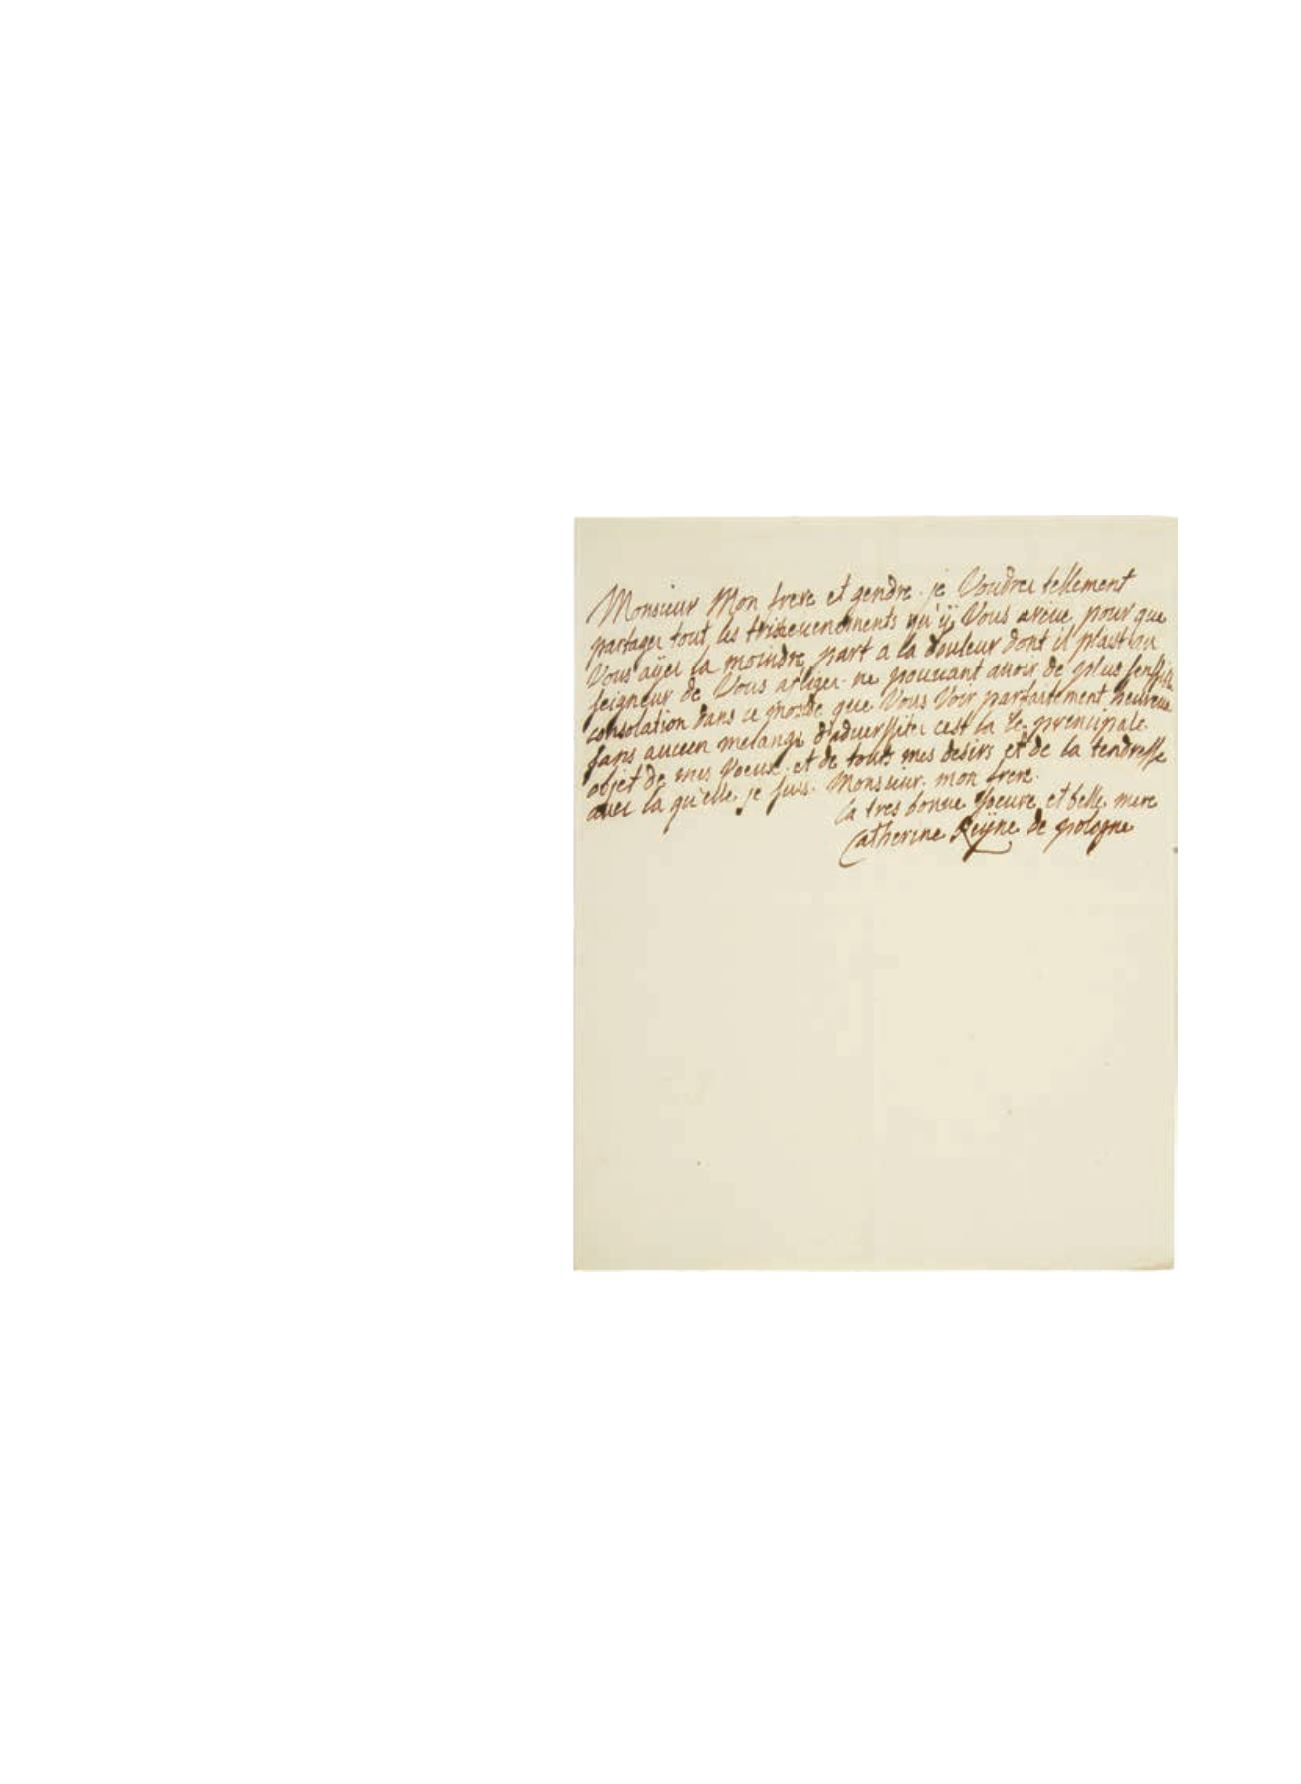 Monsieur Mon frere et gendre je Voudrei tellement
partager tout les tristeuenements qu'ÿ Vous areive pour que
Vous aÿei la moindre part a la douleur dont il plast au
seigneur de Vous afliger ne pouuant auoir de plus sensible
consolation dans ce monde que Vous Voir parfaitement heureux
sans aucun melange d'aduerssitei cest la le principale
objet de mes Voeux et de touts mes desirs et de la tendresse
auec la qu'elle je suis Monsieur mon frere
la tres bonne soeure et belle mere
Catherine Reÿne de pologne